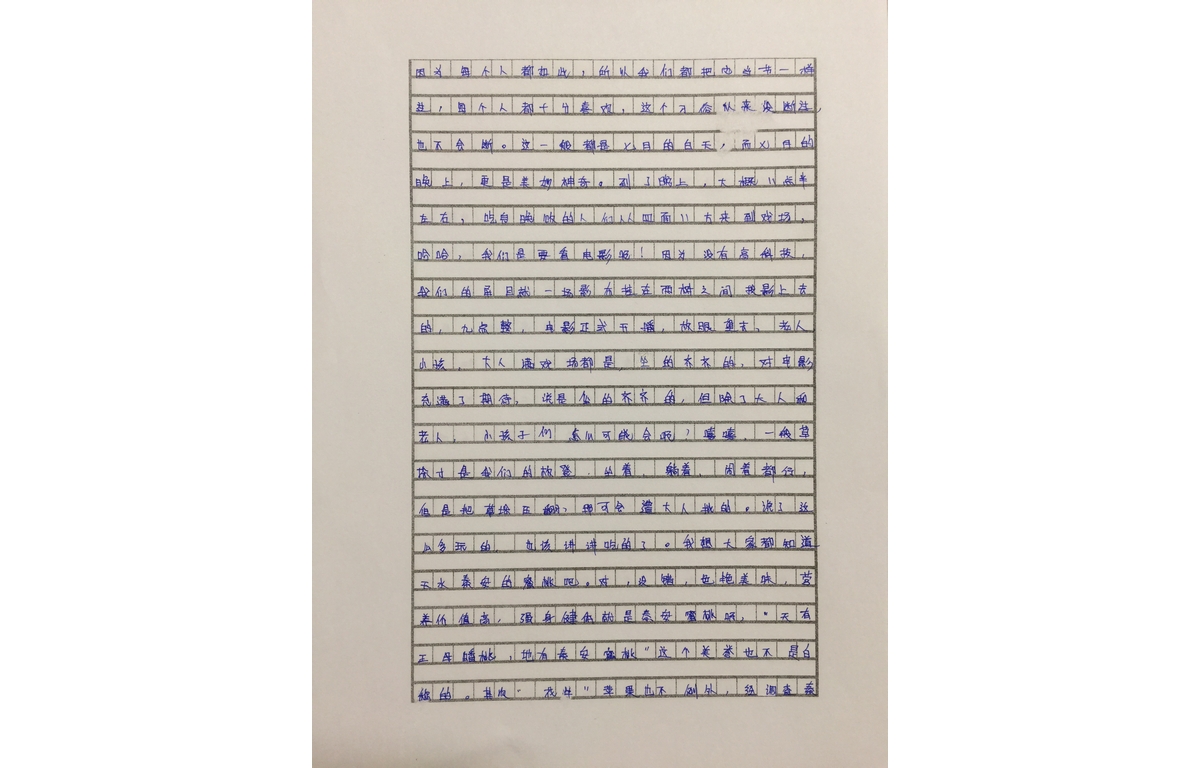 因为每个人都如此，所以我们都把它当书一样
，每个人都十分喜欢，这个习俗从来没断过，
也不会断。这一般都是义日的白天，而义日的
晚上，更是美妙神奇。到了晚上，大概八点半
左右，吃完晚饭的人们从四面八方来到戏场，
哈哈，我们是要看电影呢！因为没有高科技，
我们的屏目就一场影布挂在两树之间投影上去
的，九点整，电影正式开播，放眼望去，老人
小孩，大人满戏场都是，坐的齐齐的，对电影
充满了期待，说是坐的齐齐的，但除了大人和
老人，小孩子们怎么可能会呢？嘻嘻，一般草
垛才是我们的，坐着，躺着，周着都行，
但是把草垛压翻，那可会遭大人批的。说了这
么多玩的，也该讲讲吃的了。我想大家都知道
天水秦安的蜜桃吧。对，没错，色艳美味，营
养价值高，强身健体就是秦安蜜桃呀，“天有
王母蟠桃，地有秦安蜜桃”这个美誉也不是白
给的。其次“花牛”苹果也不例外，经调查秦